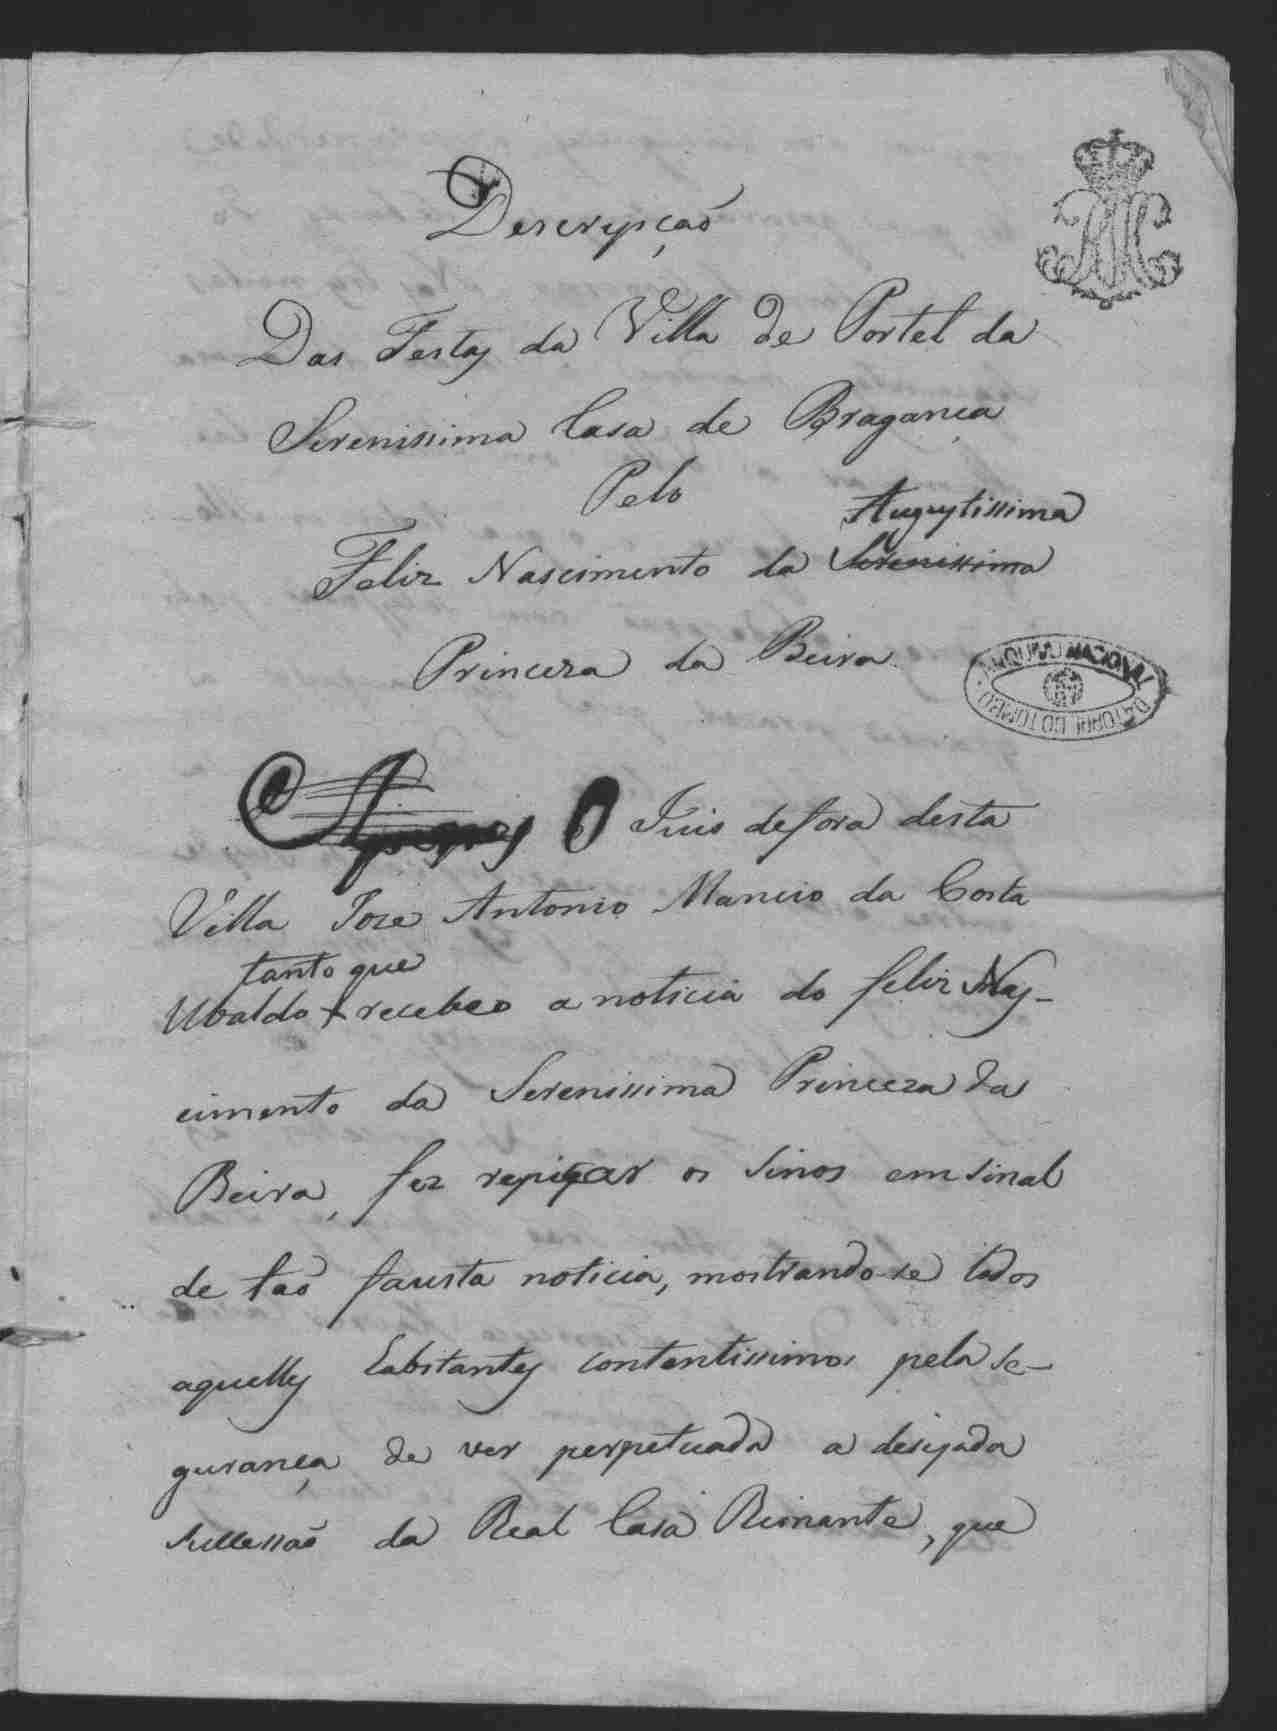 Descripção
Das Festas da Villa de Portel da
Serenissima Casa de Bragança
Pelo
Augustissima
Feliz Nascimento da Serenissima
Princeza da Beira
ARQUIVO NACIONAL DA TORRE DO TOMBO
O Juis de fora desta
Villa Joze Antonio Mancio da Costa
tanto que
Ubaldo + recebeo a noticia do feliz Nas-
cimento da Serenissima Princeza da
Beira, fez repicar os Sinos em sinal
de taõ fausta noticia, mostrando-se todos
aquelles habitantes contentissimos pela se-
gurança de ver perpetuada a desejada
Sucessaõ da Real Casa Reinante, que